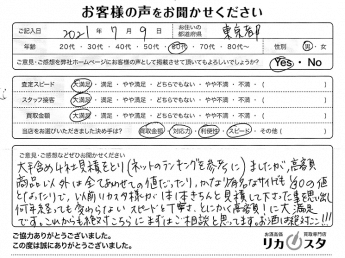 お客様の声をお聞かせください
ご記入日 2021年 7月 9日 お住いの都道府県 東京都
年齢 20代・30代・40代・50代・60代・70代・80代・90代 性別 男・女
ご意見・ご感想を弊社ホームページにお客様の声として掲載させて頂いてもよろしいでしょうか? Yes・No
査定スピード 大満足・満足・やや満足・どちらでもない・やや不満・不満・( )
スタッフ接客 大満足・満足・やや満足・どちらでもない・やや不満・不満・( )
買取金額 大満足・満足・やや満足・どちらでもない・やや不満・不満・( )
当店をお選びいただきました決め手は? 買取金額・対応力・利便性・スピード・その他( )
ご意見・ご感想などぜひお聞かせください
大手含め4社見積をとり(ネットのランキングを参考に)ましたが、高額
商品以外は全てあわせての値だったり、かなり有名なサイトでも¥0の値
となったりで、以前リカスタ様がほぼきちんと見積して下さった事を思い出し
何年経っても変わらないスピードと丁寧さ、とにかく高額!に大満足
です。これからも絶対こちらにまずはご相談と思ってます。お酒は絶対ココ!!!
ご協力ありがとうございました。
この度は誠にありがとうございました。
お酒高価買取専門店
リカスタ